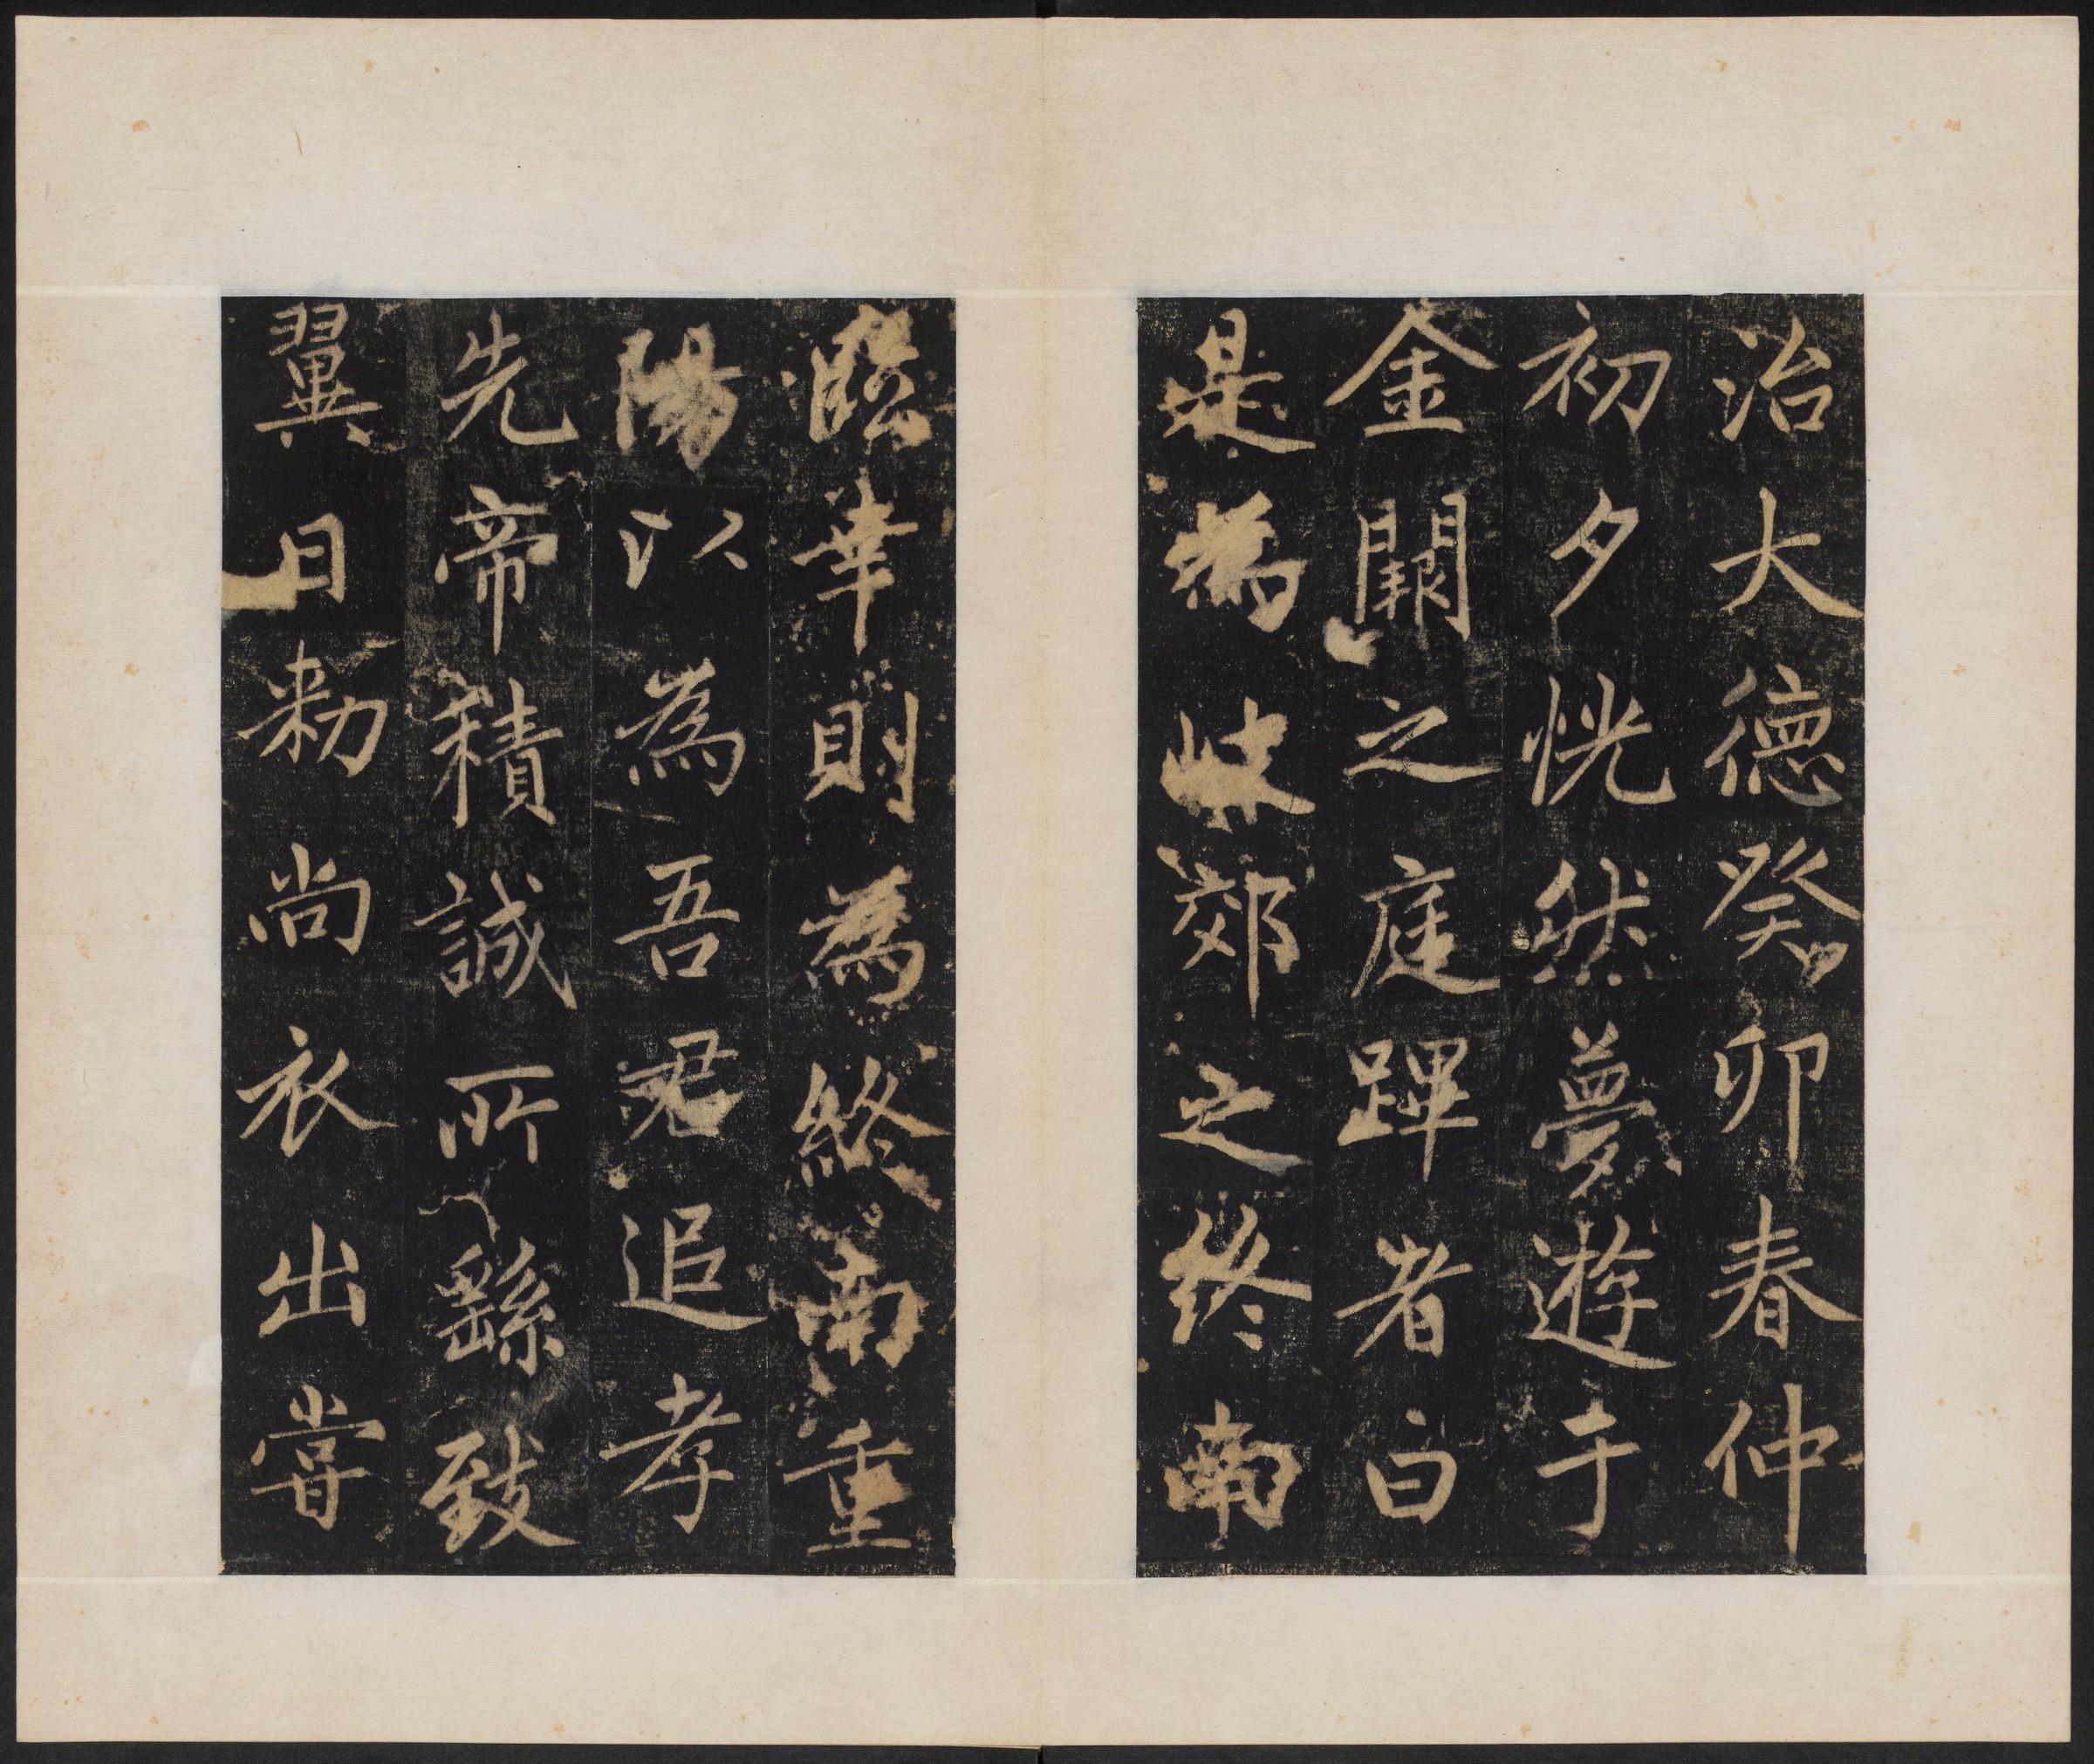 治大德癸卯春仲
初夕恍然夢遊于
金闕之庭蹕者曰
是為岐郊之終南
臨幸則為終南重
陽以為吾君追孝
先帝積誠所繇致
翼日勑尚衣出嘗